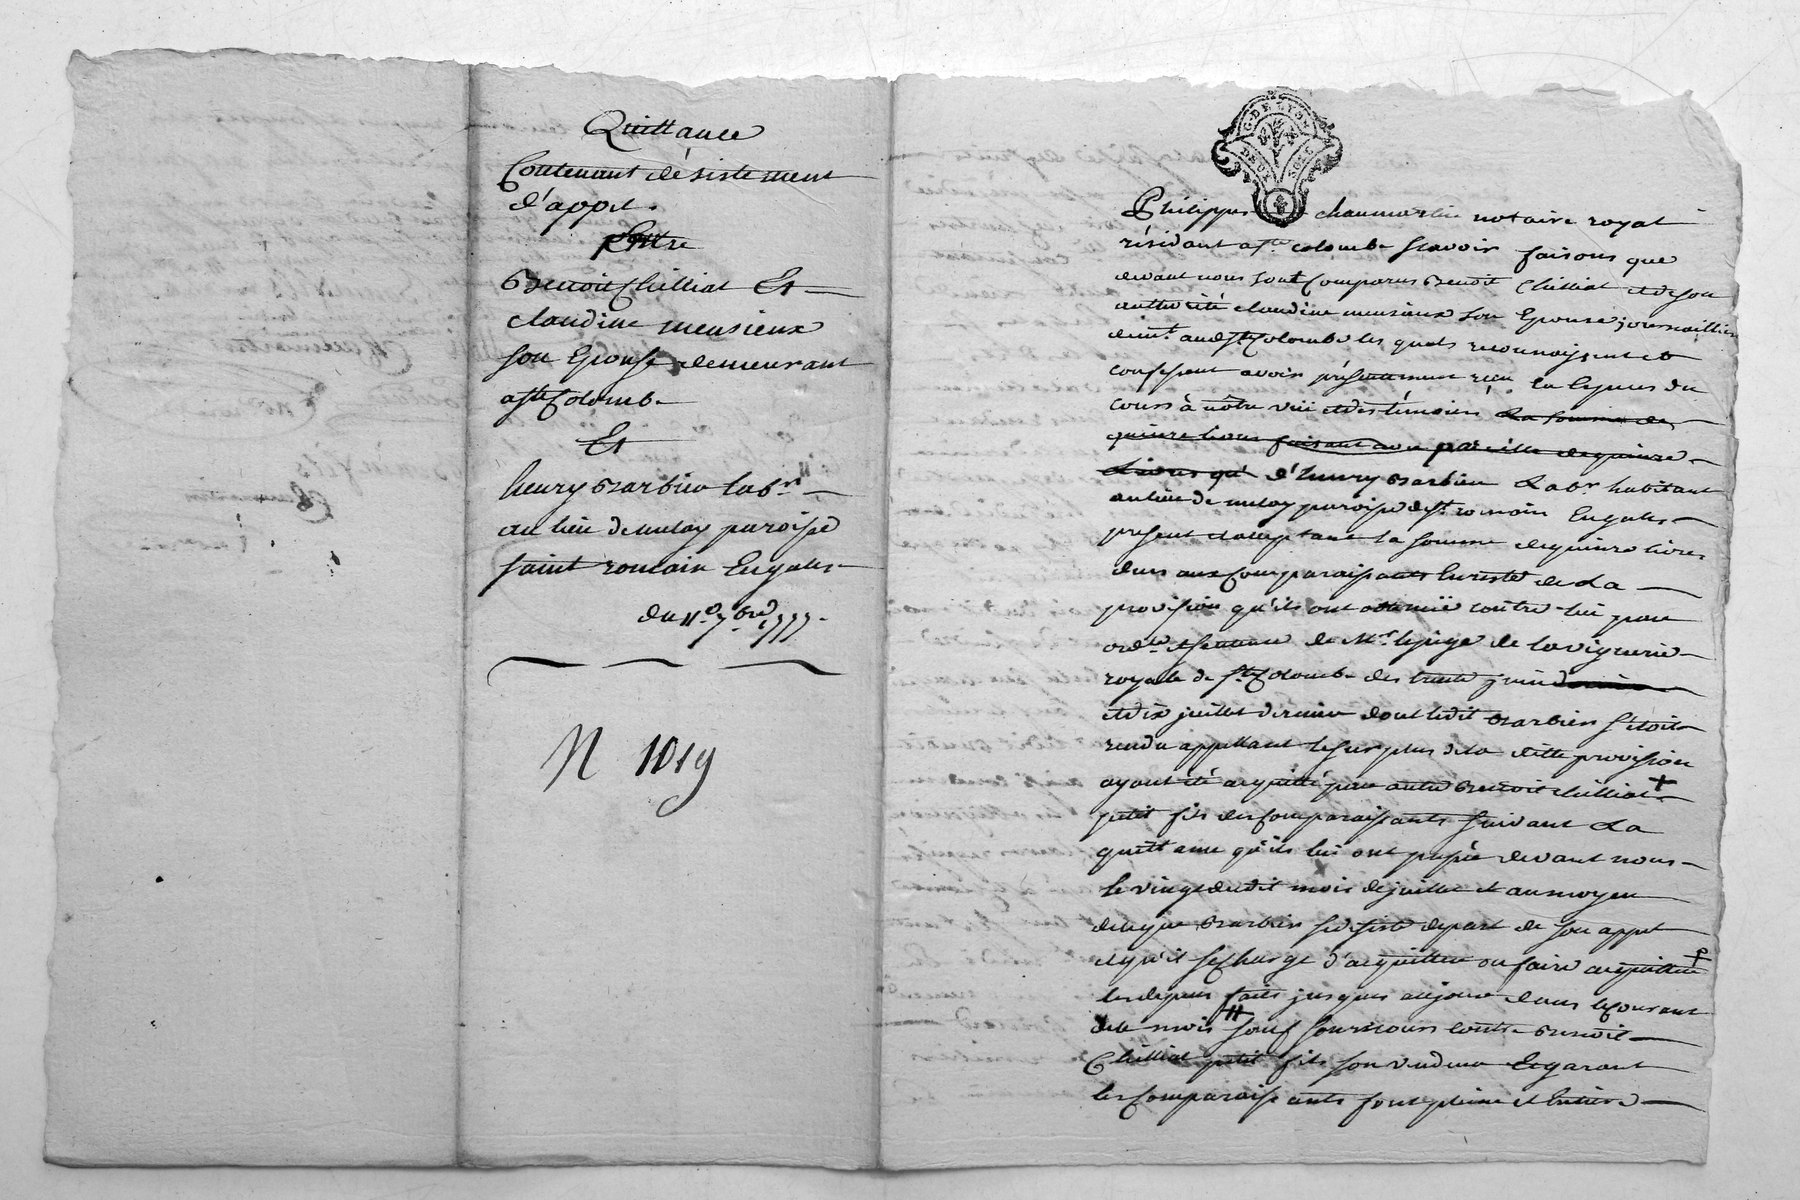 Quittance
Contenant désistement
d'appel.
Entre
Benoit Chilliat Et
claudine mensieux
son Epouse demeurant
a Ste Colombe
Et
henry Barbier labr
au lieu de mulay paroisse
saint romain Engales
du 11e 7bre 1777.
N 1019
G. DE LYON
DEUX SOLS
Philippes chaumartin notaire royal
résidant a Ste colombe scavoir faisons que
devant nous sont Comparus Benoit Chilliat et de son
authorité claudine mensieux son Epouse journaillier
demt. audt Ste Colombe les quels reconnoissent et
confessent avoir présentement reçu En Especes du
cours à nôtre vüe et des témoins la somme de
quinze livres faisant avec pareille de quinze
livres qu' d'henry Barbier Labr. habitant
au lieu de mulay paroisse de St. romain Engales
present et acceptant la somme de quinze livres
dues aux Comparaissants En reste de La
provision qu'ils ont obtenüe contre lui par
ordce. et sentence de Mr. le juge de la viguerie
royale de Ste Colombe des trente juin
et dix juillet dernier dont ledit Barbier s'etoit
rendu appellant le surplus de la ditte provision
ayant été acquitté par autre Benoit chilliat +
petit fils des Comparaissants suivant La
quittance qu'ils lui ont passée devant nous
le vingt dudit mois de juillet et au moyen
de ce que Barbier se desiste et depart de son appel
et qu'il se Charge d'acquitter ou faire acquitter
les depens faits jusques aujour d'hui le Courant
de ce mois # sauf son recours contre Benoit
Chilliat petit fils son vendeur Et garant
les Comparaissants font pleine et Entiere